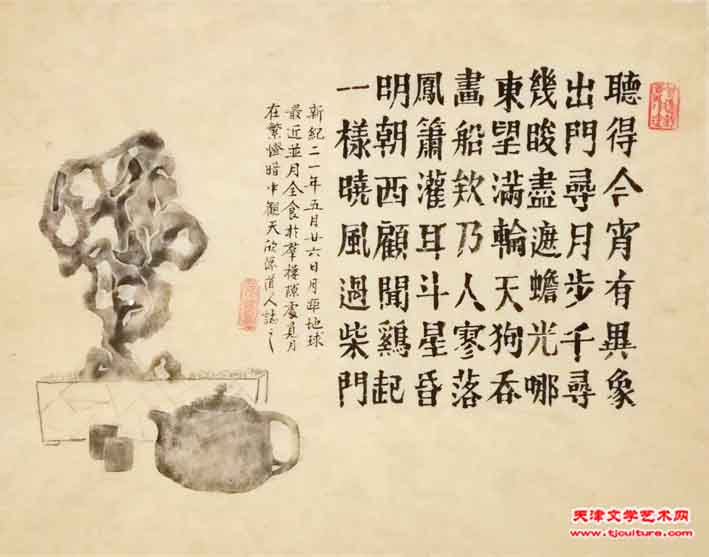 聽得今宵有異象
出門尋月步千尋
幾晙盡遮蟾光哪
東朢滿輪天狗吞
畫船欸乃人寒落
鳳簫灌耳斗星昏
明朝西顧聞鷄起
一樣曉風過柴門
新紀二一年五月廿六日月距地球
最近並月全食於羣樓隙處覓月
在繁燈暗中觀天欣道人誌之
天津文学艺术网
www.tjculture.com